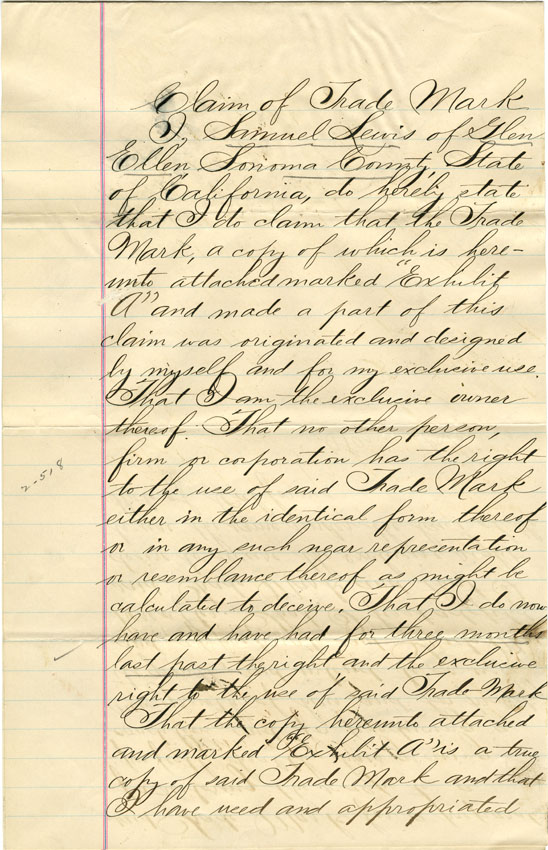 Claim of Trade Mark
I, Samuel Lewis of Glen
Ellen Sonoma County, State
of California, do hereby state
that I do claim that the Trade
Mark, a copy of which is here-
unto attached marked "Exhibit
A" and made a part of this
claim was originated and designed
by myself and for my exclusive use.
That I am the exclusive owner
thereof. That no other person,
firm or corporation has the right
to the use of said Trade Mark
either in the identical form thereof
or in any such near representation
or resemblance thereof as might be
calculated to deceive. That I do now
have and have had for three months
last past the right and the exclusive
right to the use of said Trade Mark
That the copy hereunto attached
and marked "Exhibit A" is a true
copy of said Trade Mark and that
I have used and appropriated
2-518